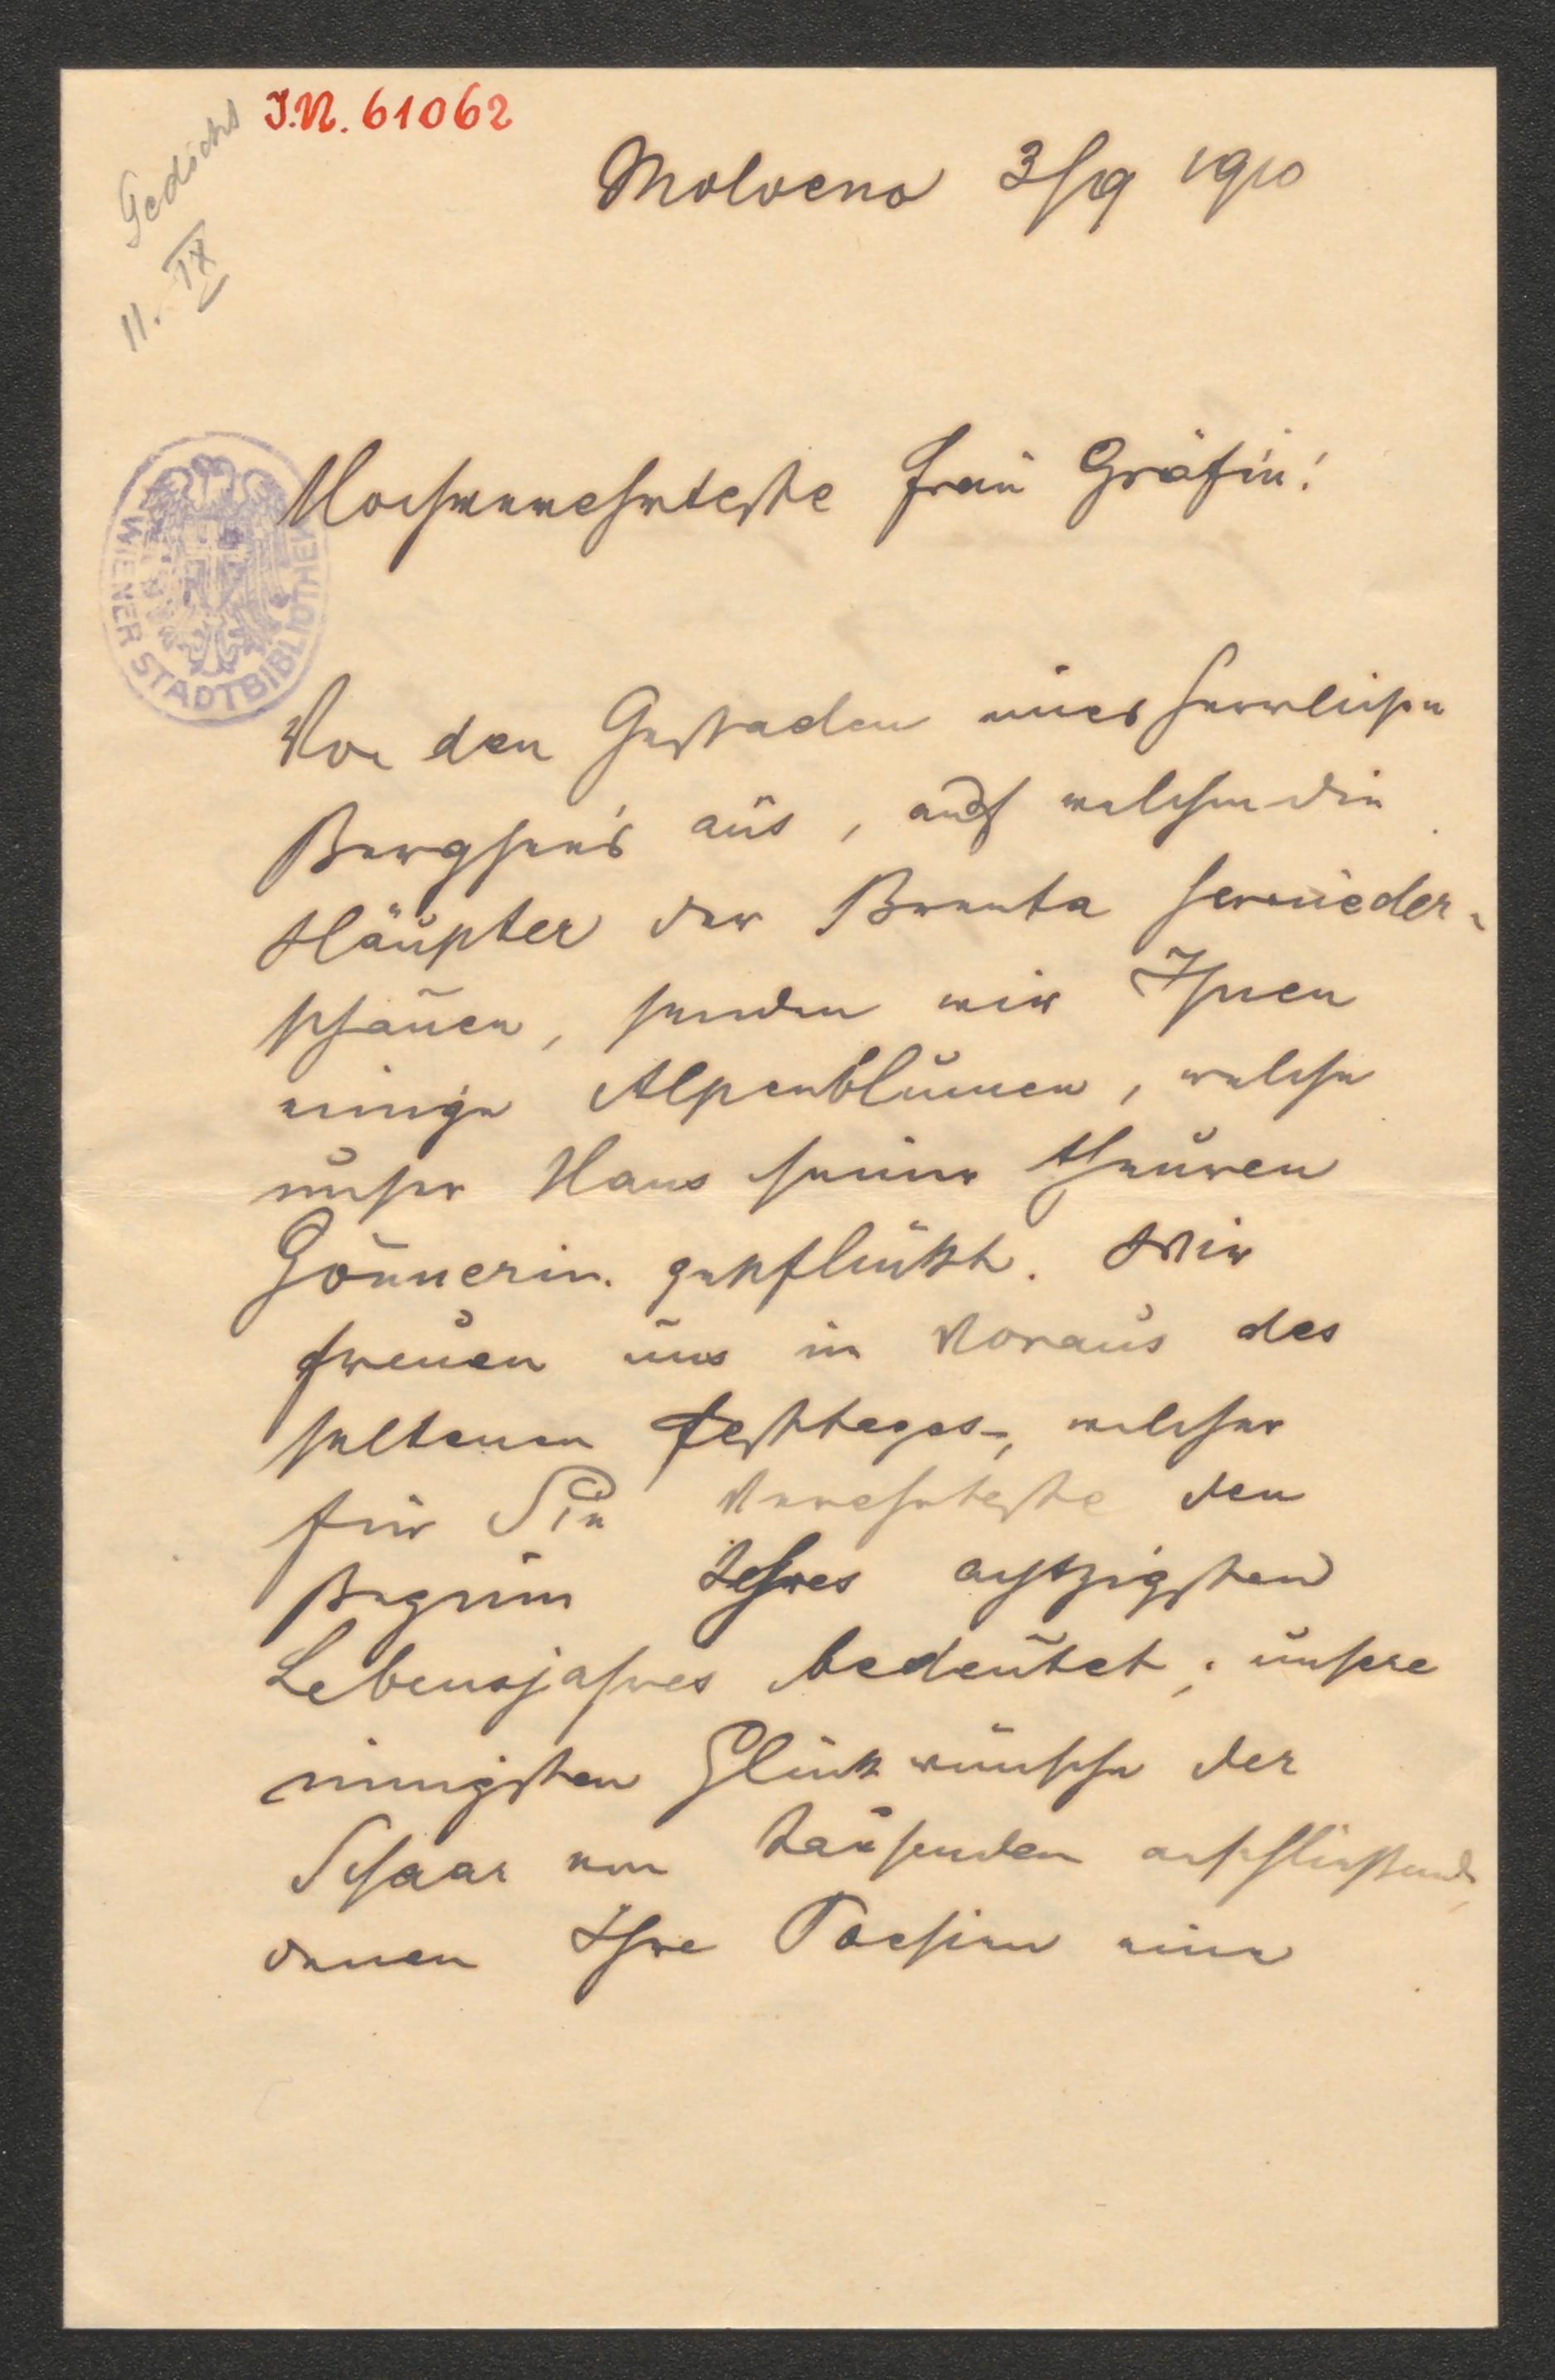 Gedicht
11. IX
I.N. 61062
Molveno 3/9 1910
WIENER STADTBIBLIOTHEK
Hochverehrteste Frau Gräfin!
Von den Gestaden eines herrlichen
Bergsee's aus, auf welchen die
Häupter der Brenta hernieder-
schauen, senden wir Ihnen
einige Alpenblumen, welche
unser Hans seiner theuren
Gönnerin gepflückt. Wir
freuen uns im Voraus des
seltenen Festtages, welcher
für Sie Verehrteste den
Beginn Ihres achtzigsten
Lebensjahres bedeutet; unsere
innigsten Glückwünsche der
Schaar von Tausenden anschließend,
denen Ihre Poesien eine